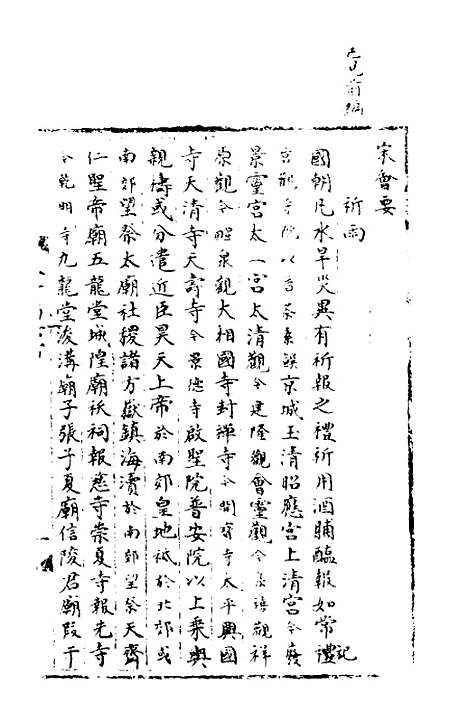 宋會要
祈雨
國朝凡水旱災異有祈報之禮祈用酒脯醢報如常禮
宮觀寺院以香茶素饌京城玉清昭應宮上清宮今廢
景靈宮太一宮太清觀今建隆觀會靈觀今集禧觀祥
源觀今醴泉觀大相國寺封禪寺今開寶寺太平興國
寺天清寺天壽寺今景德寺啟聖院普安院以上乘輿
親禱或分遣近臣昊天上帝於南郊皇地祇於北郊或
南郊望祭太廟社稷諸方嶽鎮海瀆於南郊望祭天齊
仁聖帝廟五龍堂城隍廟祅祠報慈寺崇夏寺報先寺
今乾明寺九龍堂浚溝廟子張子夏廟信陵君廟段干